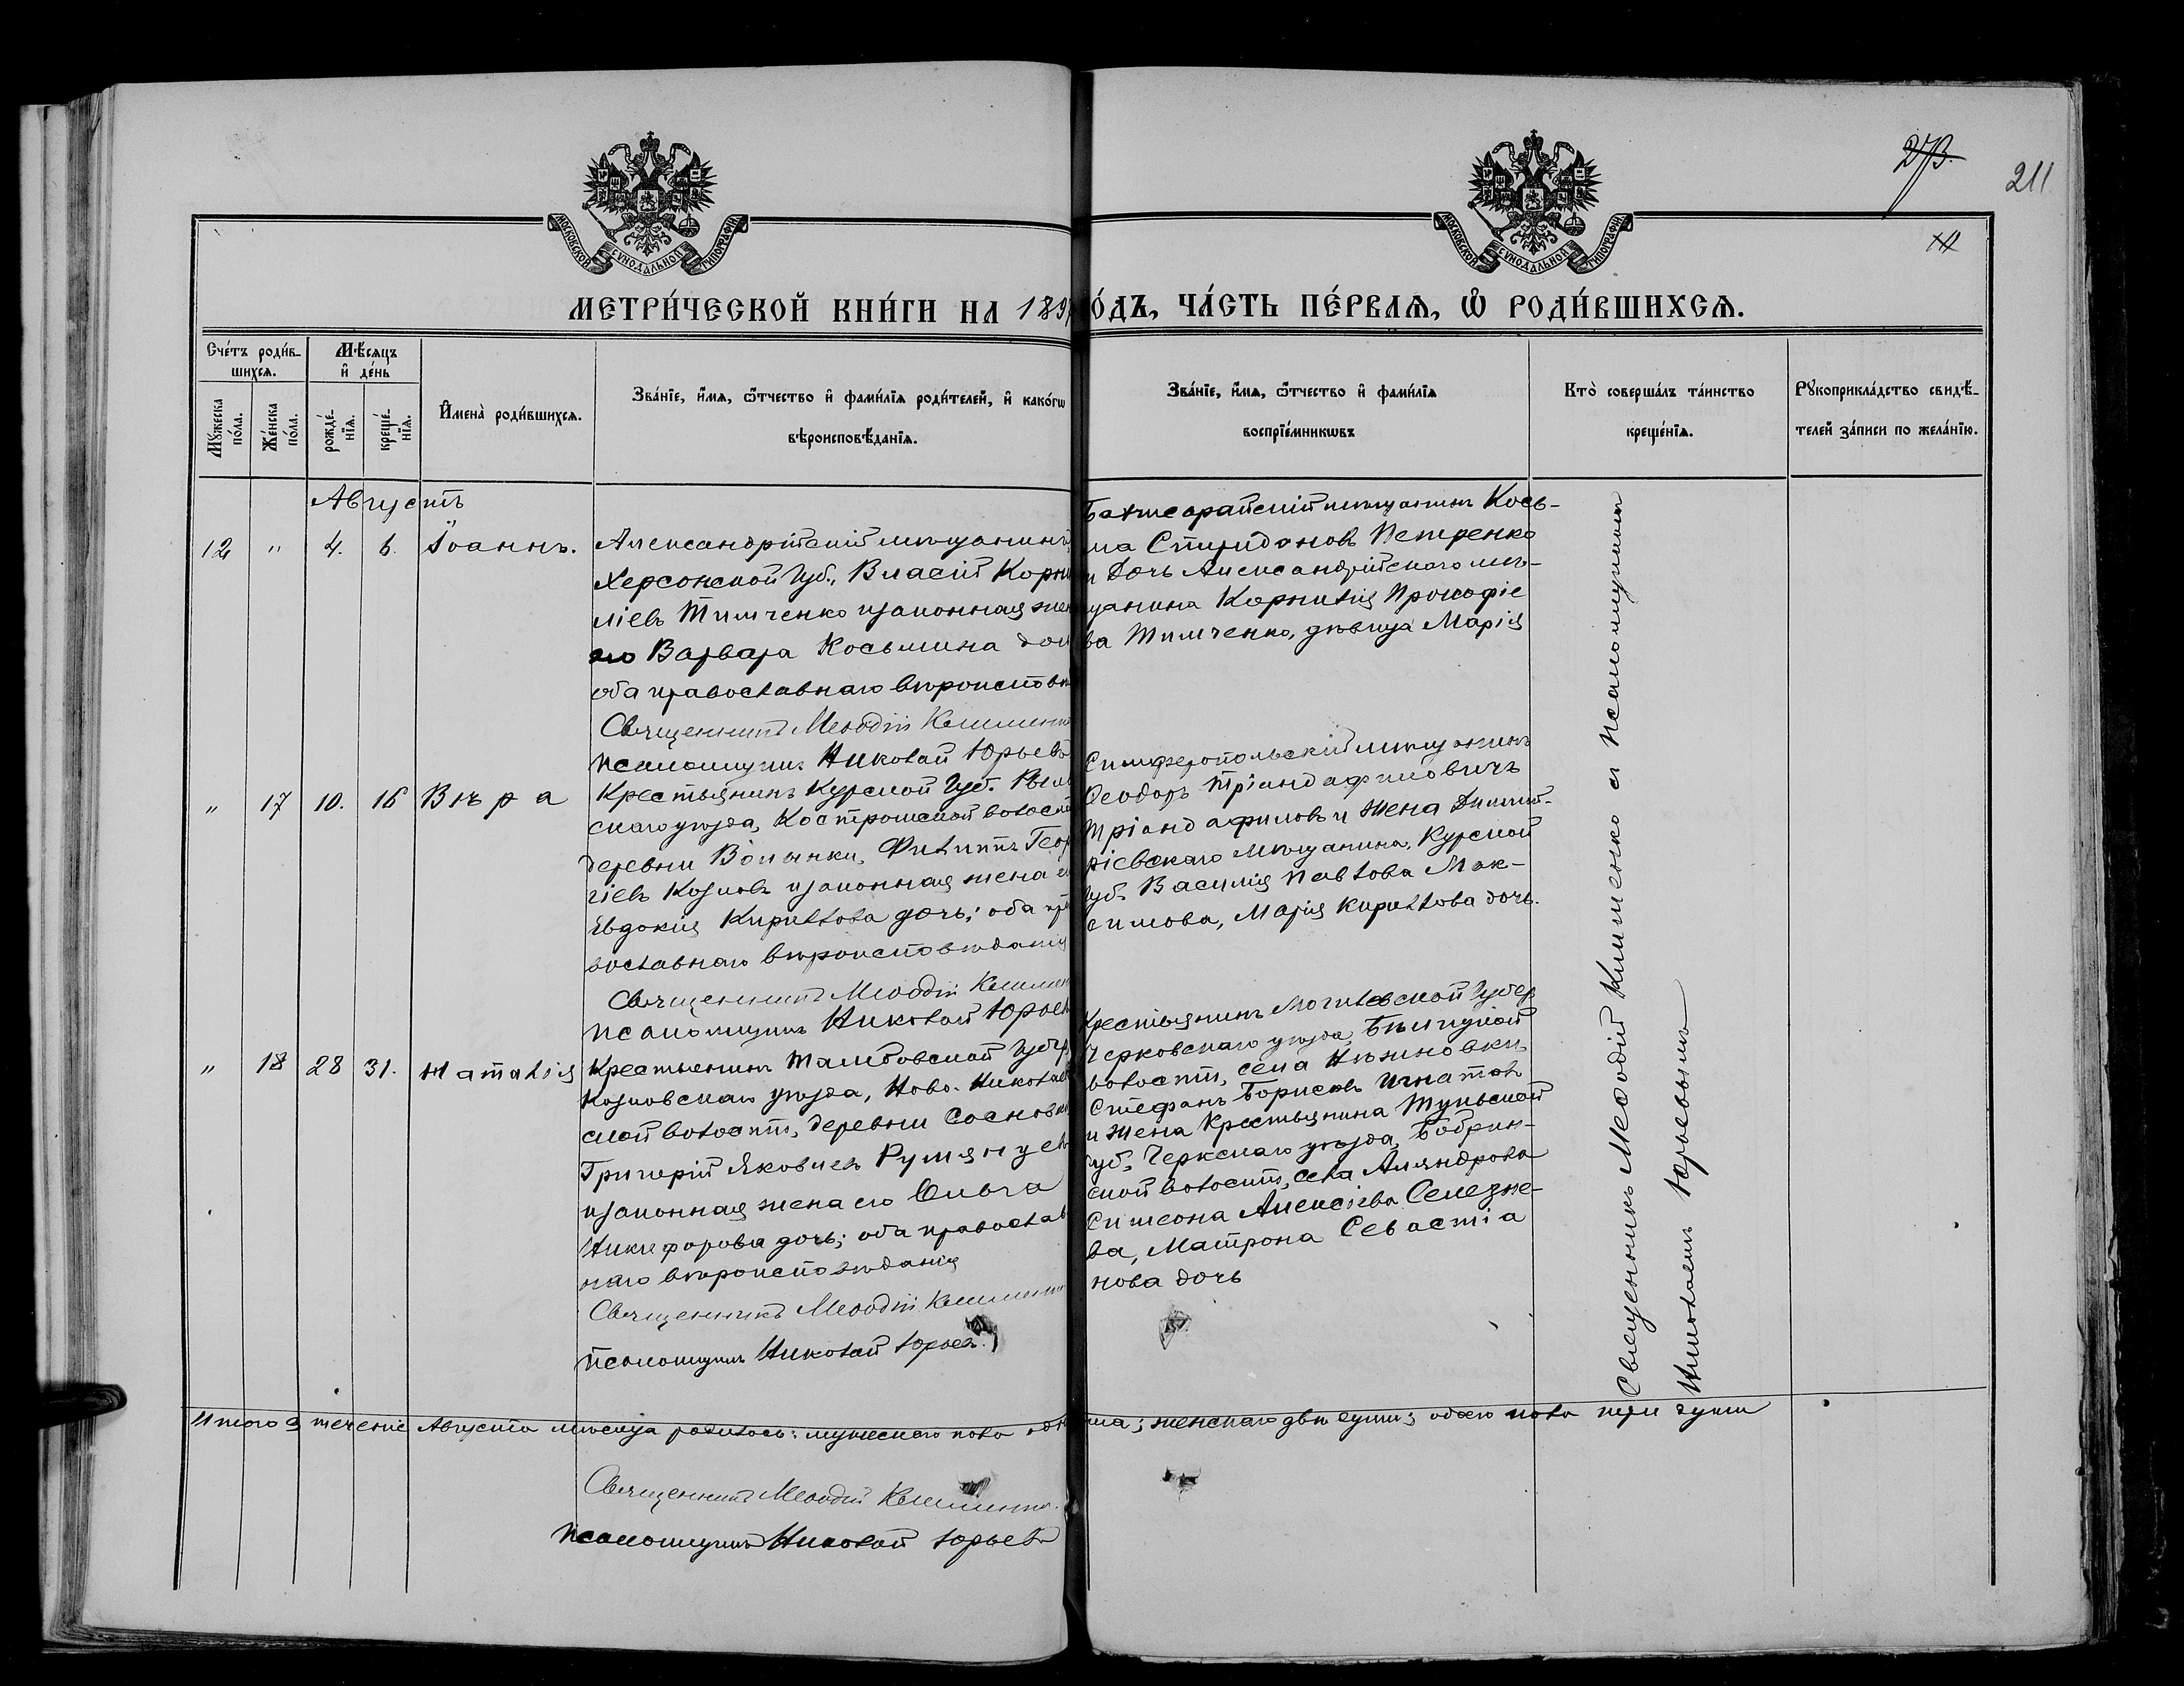 273.
211
МОСКОВСКОЙ СѴНОДАЛЬНОЙ ТИПОГРАФІИ
МОСКОВСКОЙ СѴНОДАЛЬНОЙ ТИПОГРАФІИ
МЕТРИ́ЧЕСКОЙ КНИ́ГИ НА 189
О́ДЪ, ЧА́СТЬ ПЕ́РВАѦ, Ѡ҆ РОДИ́ВШИХСѦ.
Сче́тъ роди́в-
шихсѧ.
Мѣ́сѧцъ
и҆ де́нь
Мꙋ́жеска
по́ла.
Же́нска
по́ла.
рожде́-
нїѧ.
креще́-
нїѧ.
И҆мена̀ роди́вшихсѧ.
Зва́нїе, и҆́мѧ, ѻ҆́тчество и҆ фами́лїѧ роди́телей, и҆ како́гѡ
вѣроисповѣ́данїѧ.
Зва́нїе, и҆́мѧ, ѻ҆́тчество и҆ фами́лїѧ
воспрїе́мникѡвъ
Кто̀ соверша́лъ та́инство
креще́нїѧ.
Рꙋкоприкла́дство свидѣ́-
телей за́писи по жела́нїю.
Августъ
12 " 4. 6. Іоаннъ.
Александрійскій мѣщанинъ,
Херсонской губ., Власій Корни
ліевъ Тимченко и законная жен
его Варвара Косьмина доч
оба православнаго вѣроисповѣ
Священникъ Меѳодій Клименко
псаломщикъ Николай Юрьевъ
Бахчисарайскій мѣщанинъ Кось-
ма Спиридоновъ Петренко
и дочь Александрійскаго мѣ-
щанина Корнилія Прокофіе
ва Тимченко, дѣвица Марія
" 17 10. 16 Вѣра
Крестьянинъ Курской губ. Рыль
скаго уѣзда, Костромской волост
деревни Волынки, Филиппъ Геор
гіевъ Козловъ и законная жена ег
Евдокія Кириллова дочь; оба пра
вославнаго вѣроисповѣданія
Священникъ Меѳодій Климен
псаломщикъ Николай Юрьев
Симферопольскій мѣщанинъ
Ѳеодоръ Тріандафиловичъ
Тріандафиловъ и жена Дмит-
ріевскаго мѣщанина, Курской
губ. Василія Павлова Мак-
симова, Марія Кириллова дочь.
" 18 28 31. Наталія
Крестьянинъ Тамбовской губер
Козловскаго уѣзда, Ново-Николаев
ской волости, деревни Сосновки
Григорій Яковлевъ Румянцев
и законная жена его Ольга
Никифорова дочь; оба православ
наго вѣроисповѣданія
Священникъ Меѳодій Клименко
Псаломщикъ Николай Юрьевъ.
Крестьянинъ Могилевской губер
Чериковскаго уѣзда,
волости, села
Стефанъ Борисовъ Игнатов
и жена крестьянина Тульской
губ. Чернскаго уѣзда, Бобрик-
ской волости, села
Симеона Алексіева Селезне-
ва, Матрона Севастіа
нова дочь
Священникъ Меѳодій Клименко съ псаломщикомъ
Николаемъ Юрьевымъ
Итого въ теченіе Августа мѣсяца родилось: мужескаго пола одн
ша; женскаго двѣ души; обоего пола три души
Священникъ Меѳодій Клименко.
Псаломщикъ Николай Юрьевъ